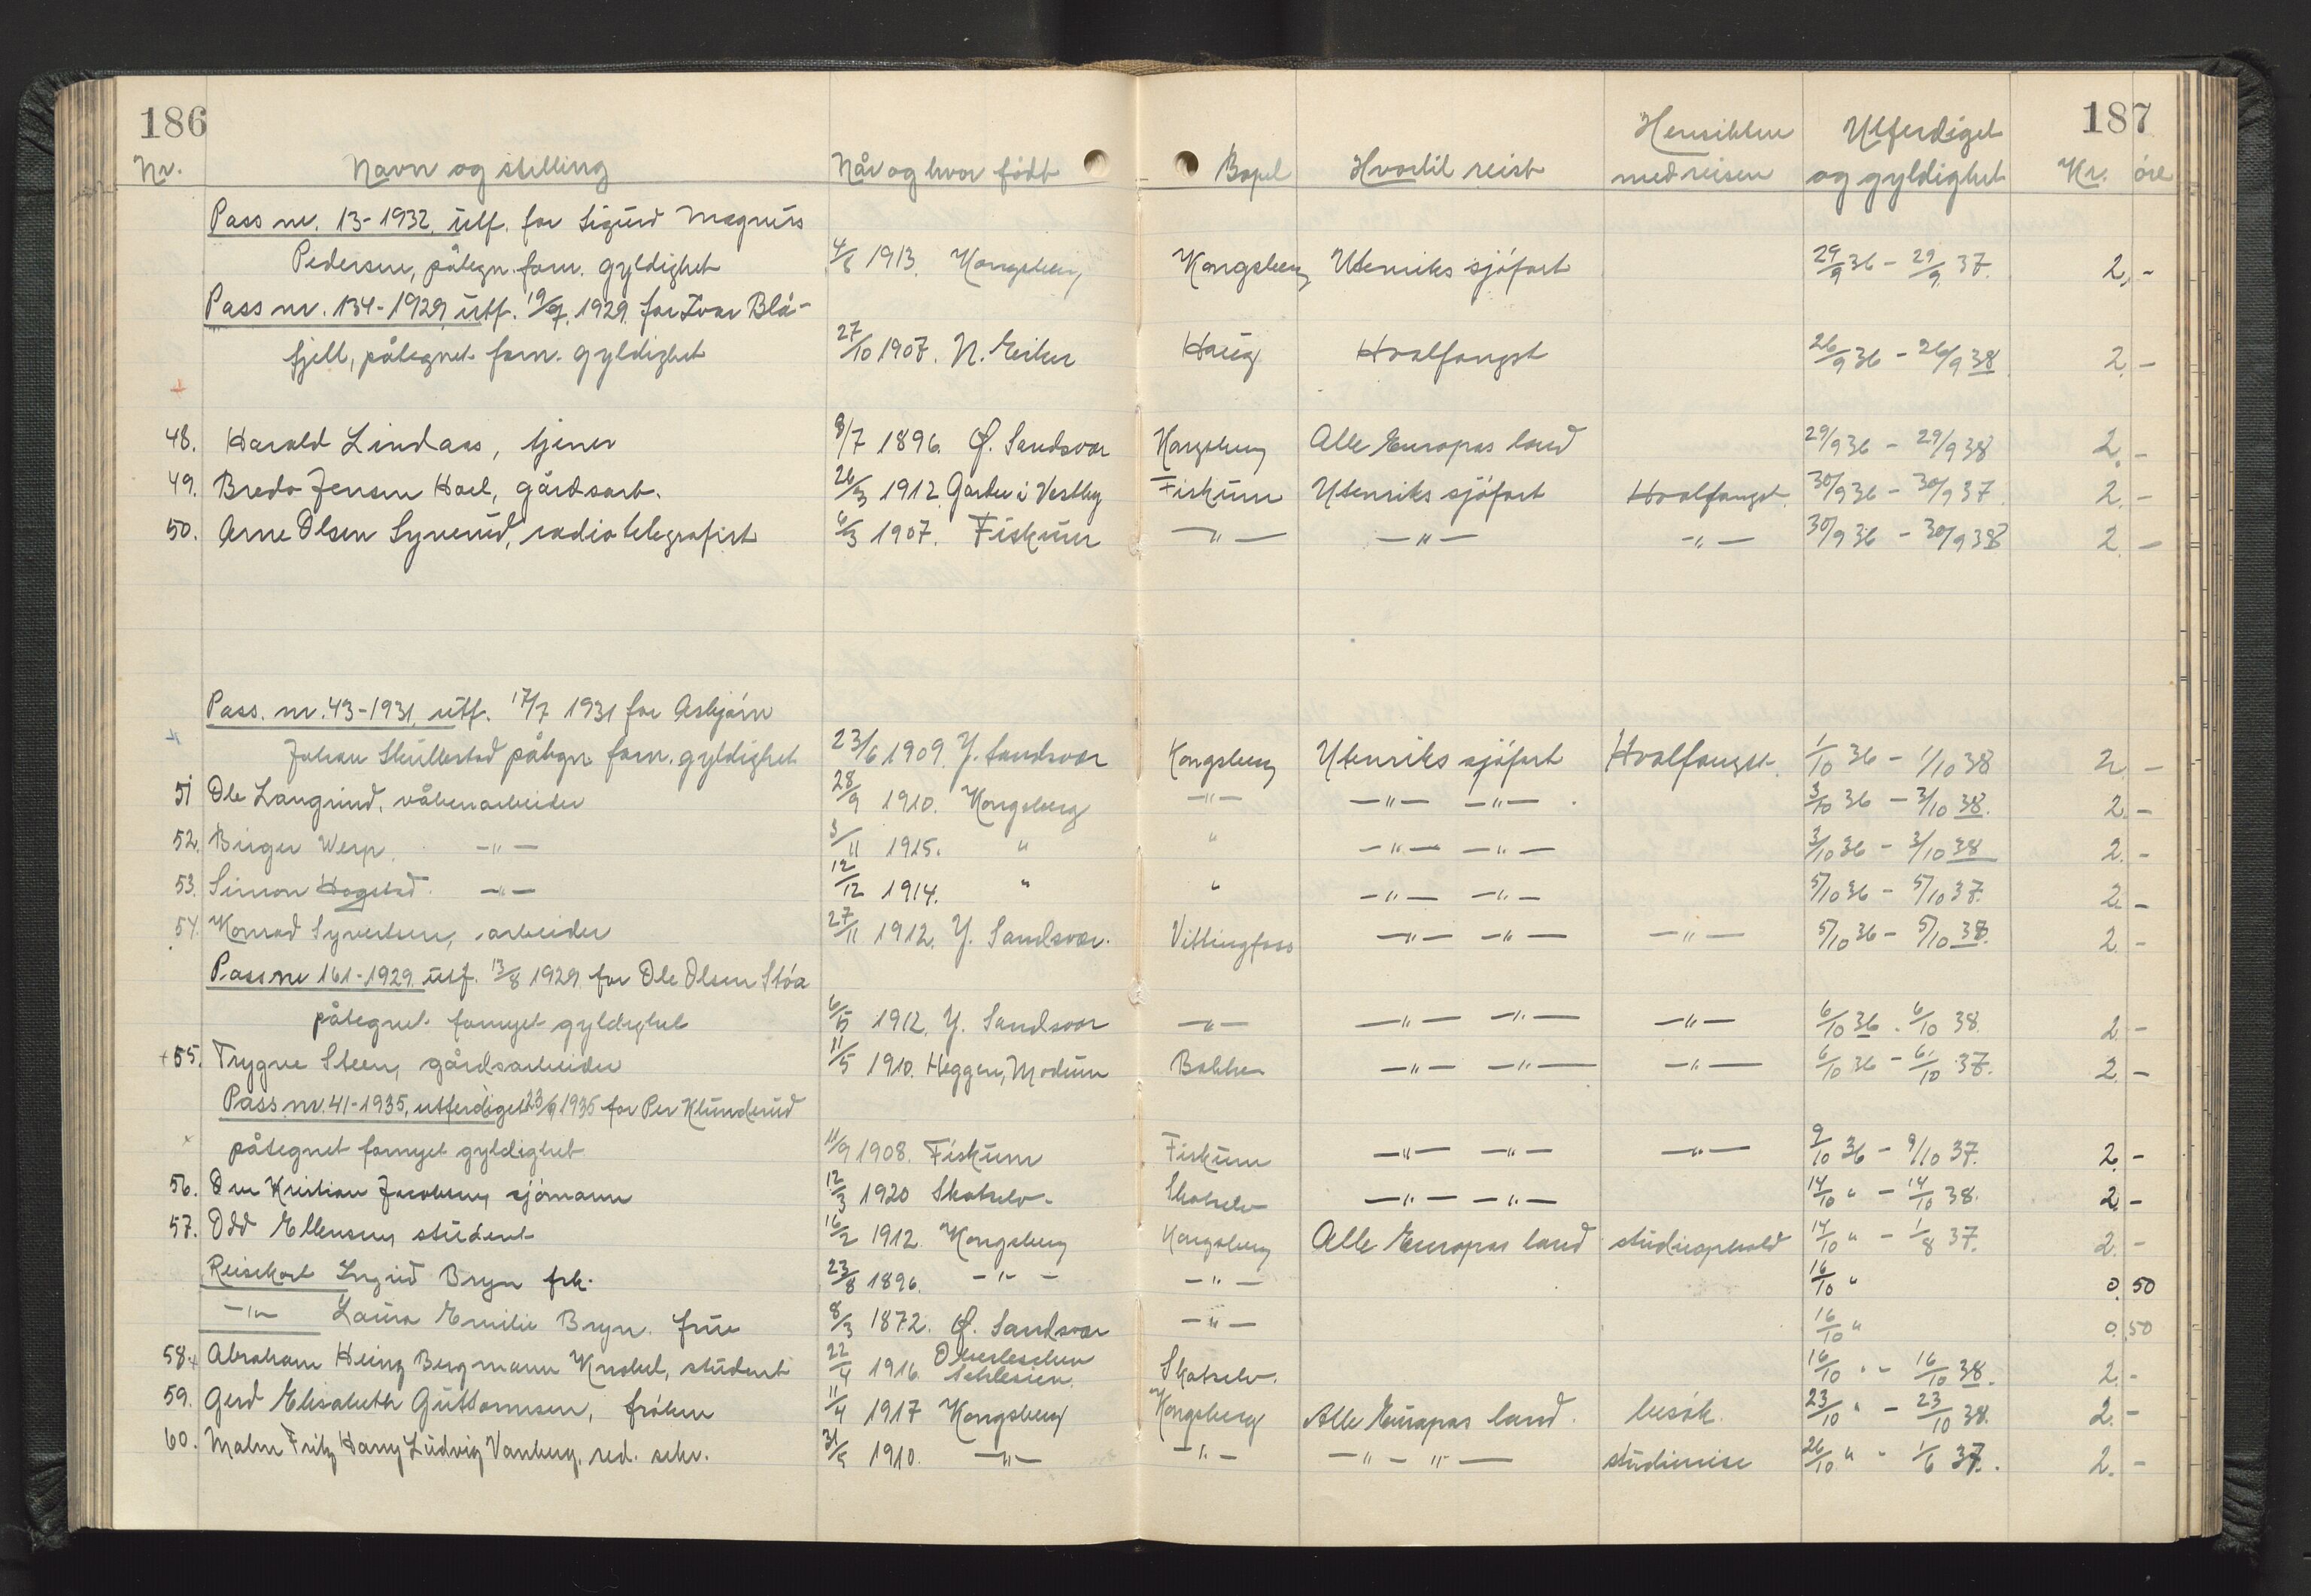 186 187
Hensikten Utferdiget
Nr. Navn og stilling Når og hvor født Bopel Hvortil reist med reisen og gyldighet Kr. øre
Pass nr. 13-1932, utf. for Sigurd Magnus
Pedersen, påtegn. forn. gyldighet 4/6 1913. Kongsberg Kongsberg Utenriks sjøfart 29/9 36 - 29/9 37. 2,-
Pass nr. 134-1929, utf. 19/7. 1929 for Ivar Blå-
fjell, påtegnet forn. gyldighet 27/10 1907. N. Eiker Haug Hvalfangst 26/9 36 - 26/9 38 2.-
48. Harald Lindaas, tjener 8/7 1896. Ø. Sandsvær Kongsberg Alle Europas land 29/9 36 - 29/9 38 2.-
49. Bredo Jensen Hoel, gårdsarb. 26/3 1912 Garder i Vestby Fiskum Utenriks sjøfart Hvalfangst. 30/9 36 - 30/9 37. 2.-
50. Arne Olsen Syverud, radiotelegrafist 6/3 1907. Fiskum —"— —"— —"— 30/9 36 - 30/9 38 2.-
Pass. nr. 43-1931, utf. 17/7 1931 for Asbjørn
Johan Skullestad påtegn. forn. gyldighet 23/6 1909. Y. Sandsvær Kongsberg Utenriks sjøfart Hvalfangst. 1/10 36 - 1/10 38 2.-
51 Ole Langrind, våbenarbeider 28/9 1910. Kongsberg —"— —"— —"— 3/10 36 - 3/10 38. 2.-
52. Birger Werp. —"— 3/11 1915. " " —"— —"— 3/10 36 - 3/10 38 2.-
53. Simon Hogstad. —"— 12/12 1914. " " —"— —"— 5/10 36 - 5/10 37. 2.-
54. Konrad Syvertsen, arbeider 27/11 1912. Y. Sandsvær. Vittingfoss —"— —"— —"— 5/10 36 - 5/10 38. 2.-
Pass nr 161-1929. utf. 13/8 1929 for Ole Olsen Stöa
påtegnet fornyet gyldighet 6/5 1912. Y. Sandsvær —"— —"— —"— —"— 6/10 36. 6/10 38. 2.-
+55. Trygve Steen, gårdsarbeider 11/5 1910. Heggen, Modum Bakke —"— —"— —"— 6/10 36 - 6/10 37. 2.-
Pass nr. 41-1935, utferdiget 23/9 1935 for Per Klunderud
x påtegnet fornyet gyldighet 11/9 1908. Fiskum Fiskum —"— —"— —"— 9/10 36 - 9/10 37. 2.-
56. Kristian Jacobsen, sjømann 12/3 1920 Skotselv. Skotselv —"— —"— 14/10 " - 14/10 38. 2.-
57. Odd Ellensen, student 16/2 1912. Kongsberg Kongsberg Alle Europas land studieophold 14/10 " - 1/8 37. 2.-
Reisekort Ingrid Bryn frk. 23/8 1896. —"— —"— 16/10 " 0,50
—"— Laura Emilie Bryn. frue 8/3 1872. Ø. Sandsvær —"— 16/10 " 0.50
58.+ Abraham Heinz Bergmann, student 22/4 1916. Schlesien. Skotselv. 16/10 " - 16/10 38. 2.-
59. Gerd Elisabeth Guttormsen, frøken 11/4 1917 Kongsberg Kongsberg Alle Europas land. besøk. 23/10 " - 23/10 38. 2.-
60. Malm Fritz Harry Ludvig Vanberg, red. sekr. 31/5 1910. —"— —"— —"—"— studiereise 26/10 " - 1/6 37. 2.-